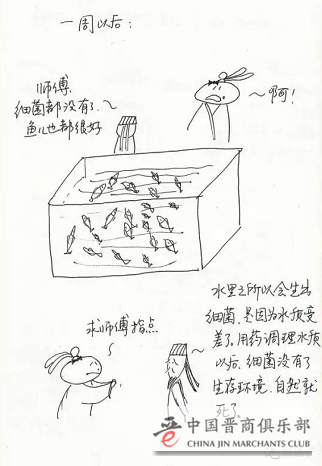 一周以后：
师傅，
细菌都没有了～
鱼儿也都很好
～啊！
求师傅指点
水里之所以会生出
细菌、是因为水质变
差了、用药调理水质
以后、细菌没有了
生存环境、自然就
死了。
中国晋商俱乐部
CHINA JIN MERCHANTS CLUB